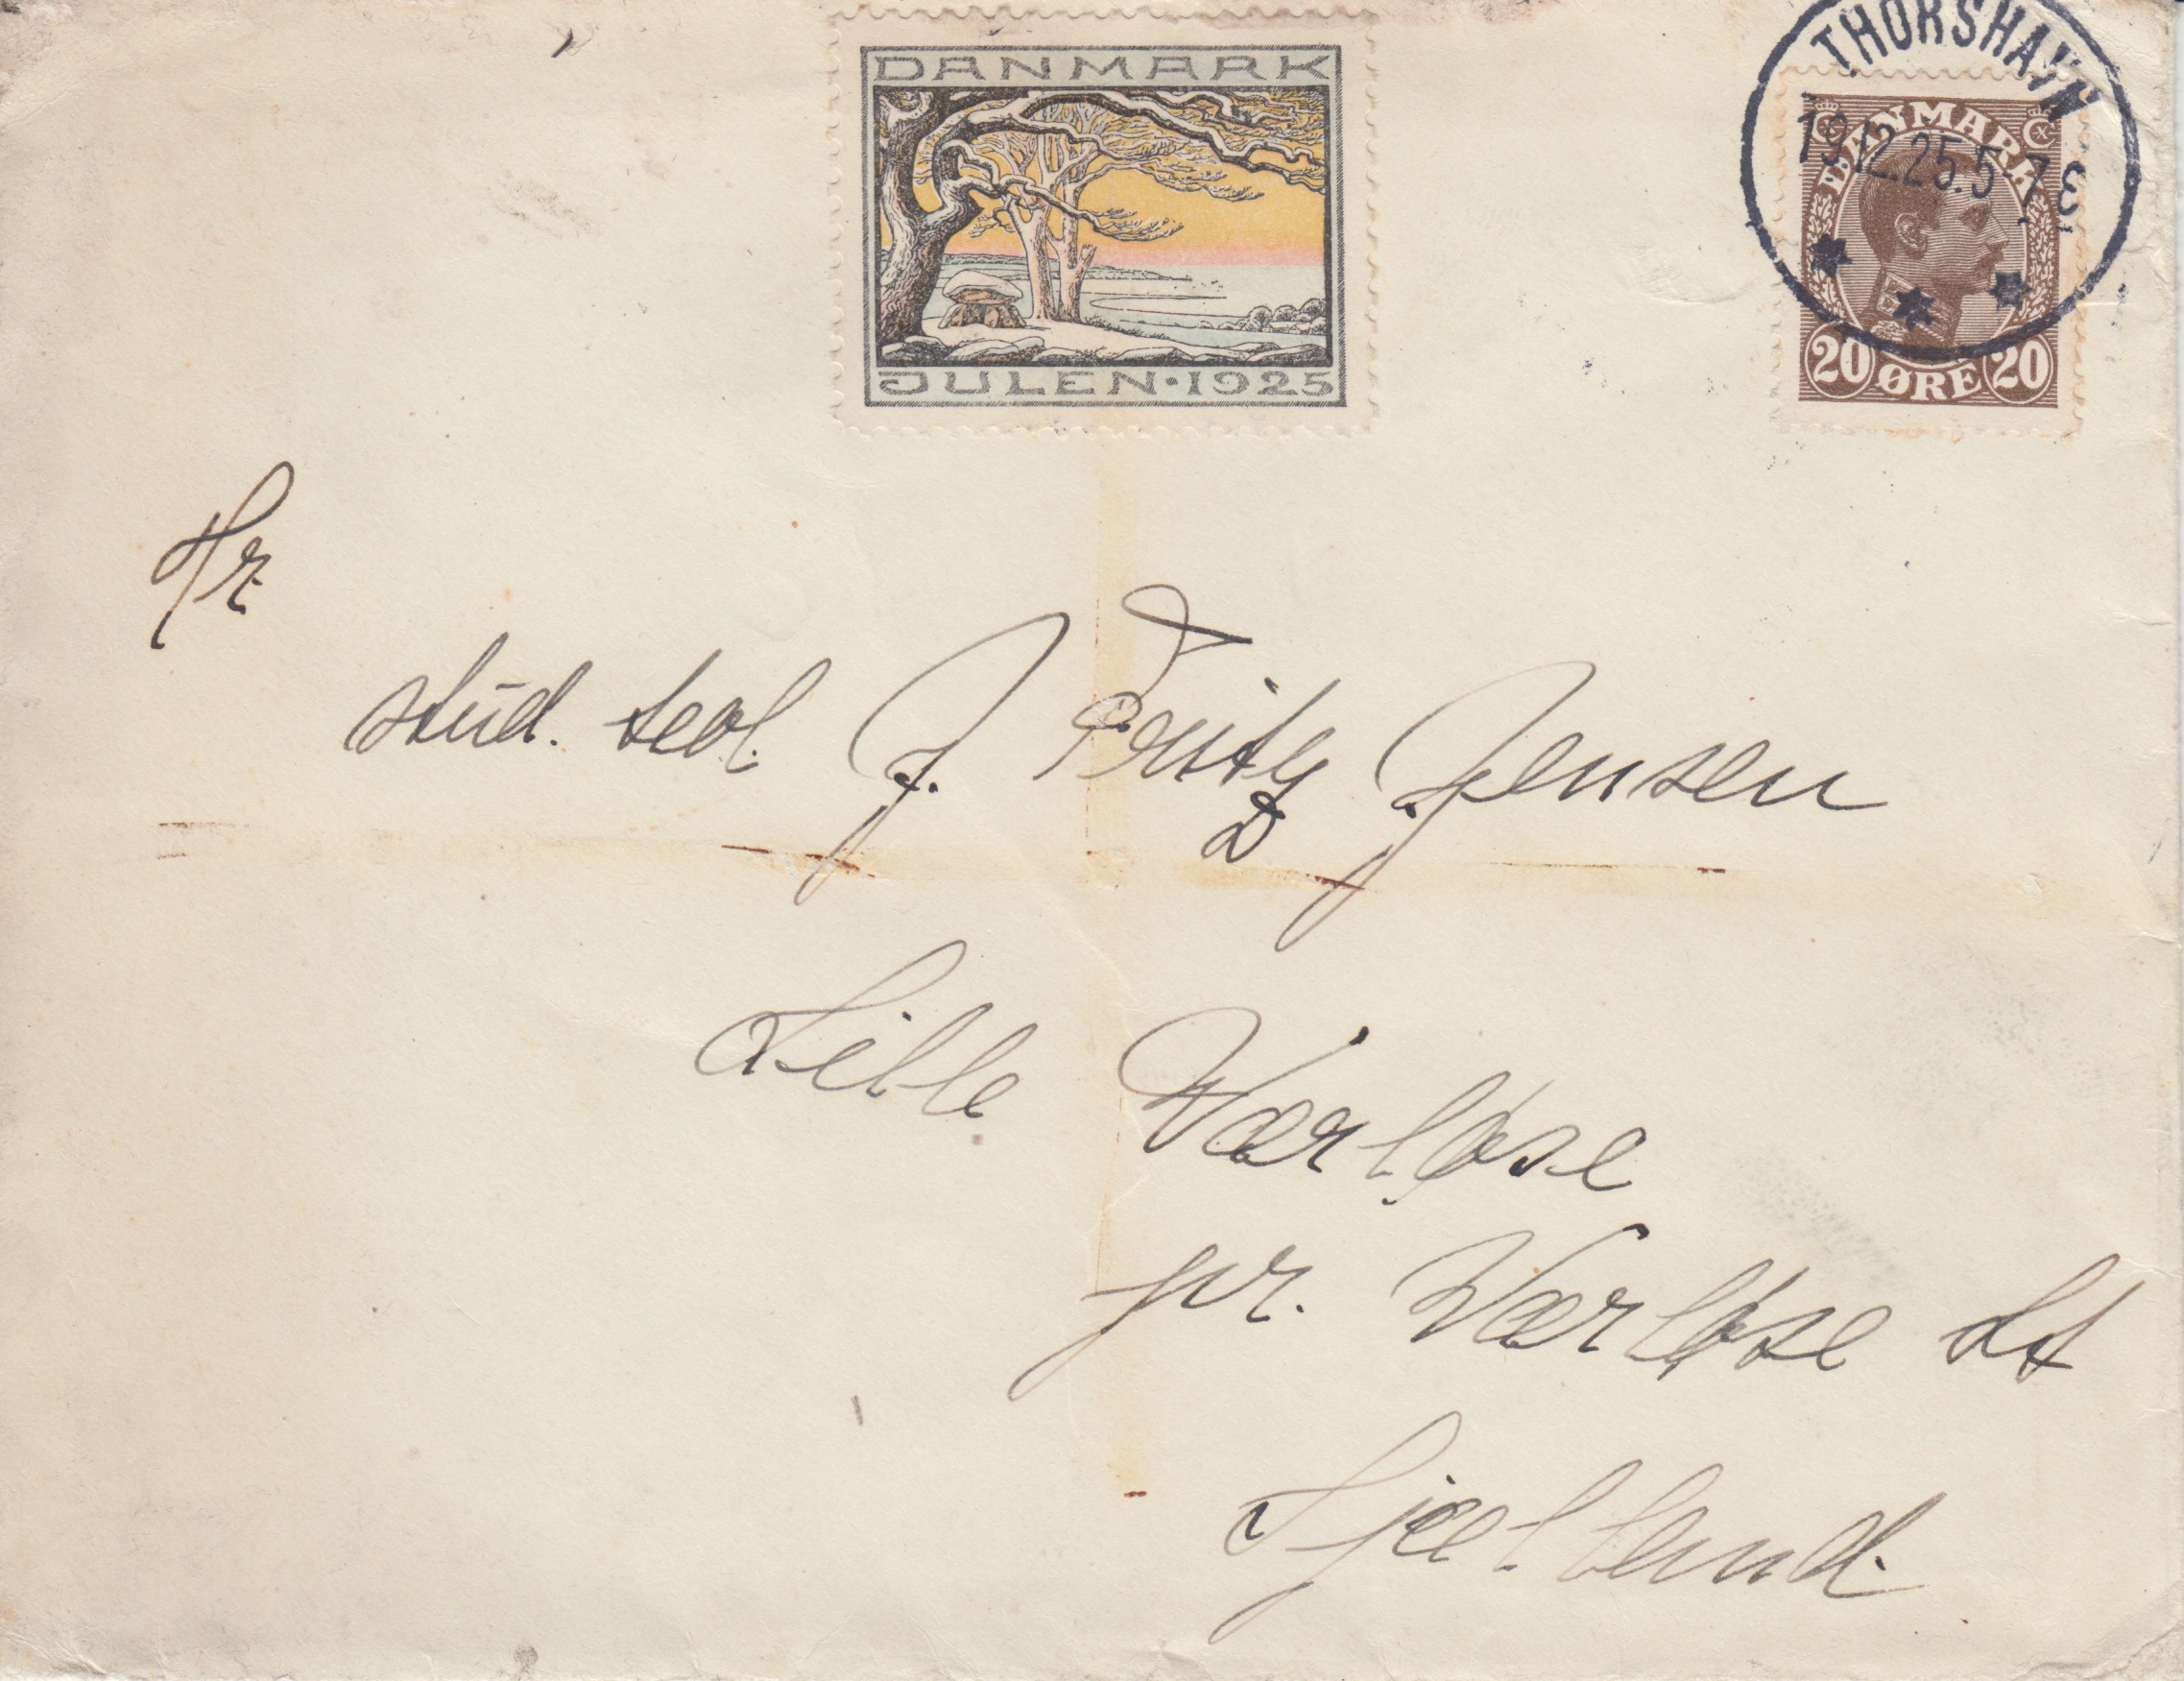 DANMARK
JULEN · 1925
THORSHAVN
19.12.25. 5-7 E.
DANMARK
20 ØRE 20
Hr
stud. teol J. Fritz Jensen
Lille Værløse
pr. Værløse St
Sjælland.